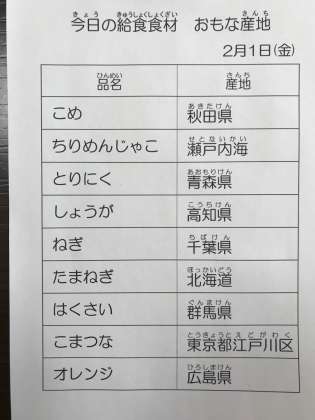 今日の給食食材　おもな産地
2月1日(金)
品名　産地
こめ　秋田県
ちりめんじゃこ　瀬戸内海
とりにく　青森県
しょうが　高知県
ねぎ　千葉県
たまねぎ　北海道
はくさい　群馬県
こまつな　東京都江戸川区
オレンジ　広島県